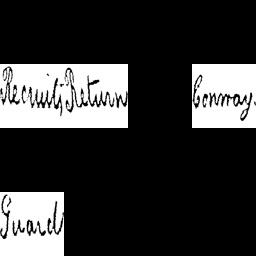 Recruit, Return Conway.
Guard